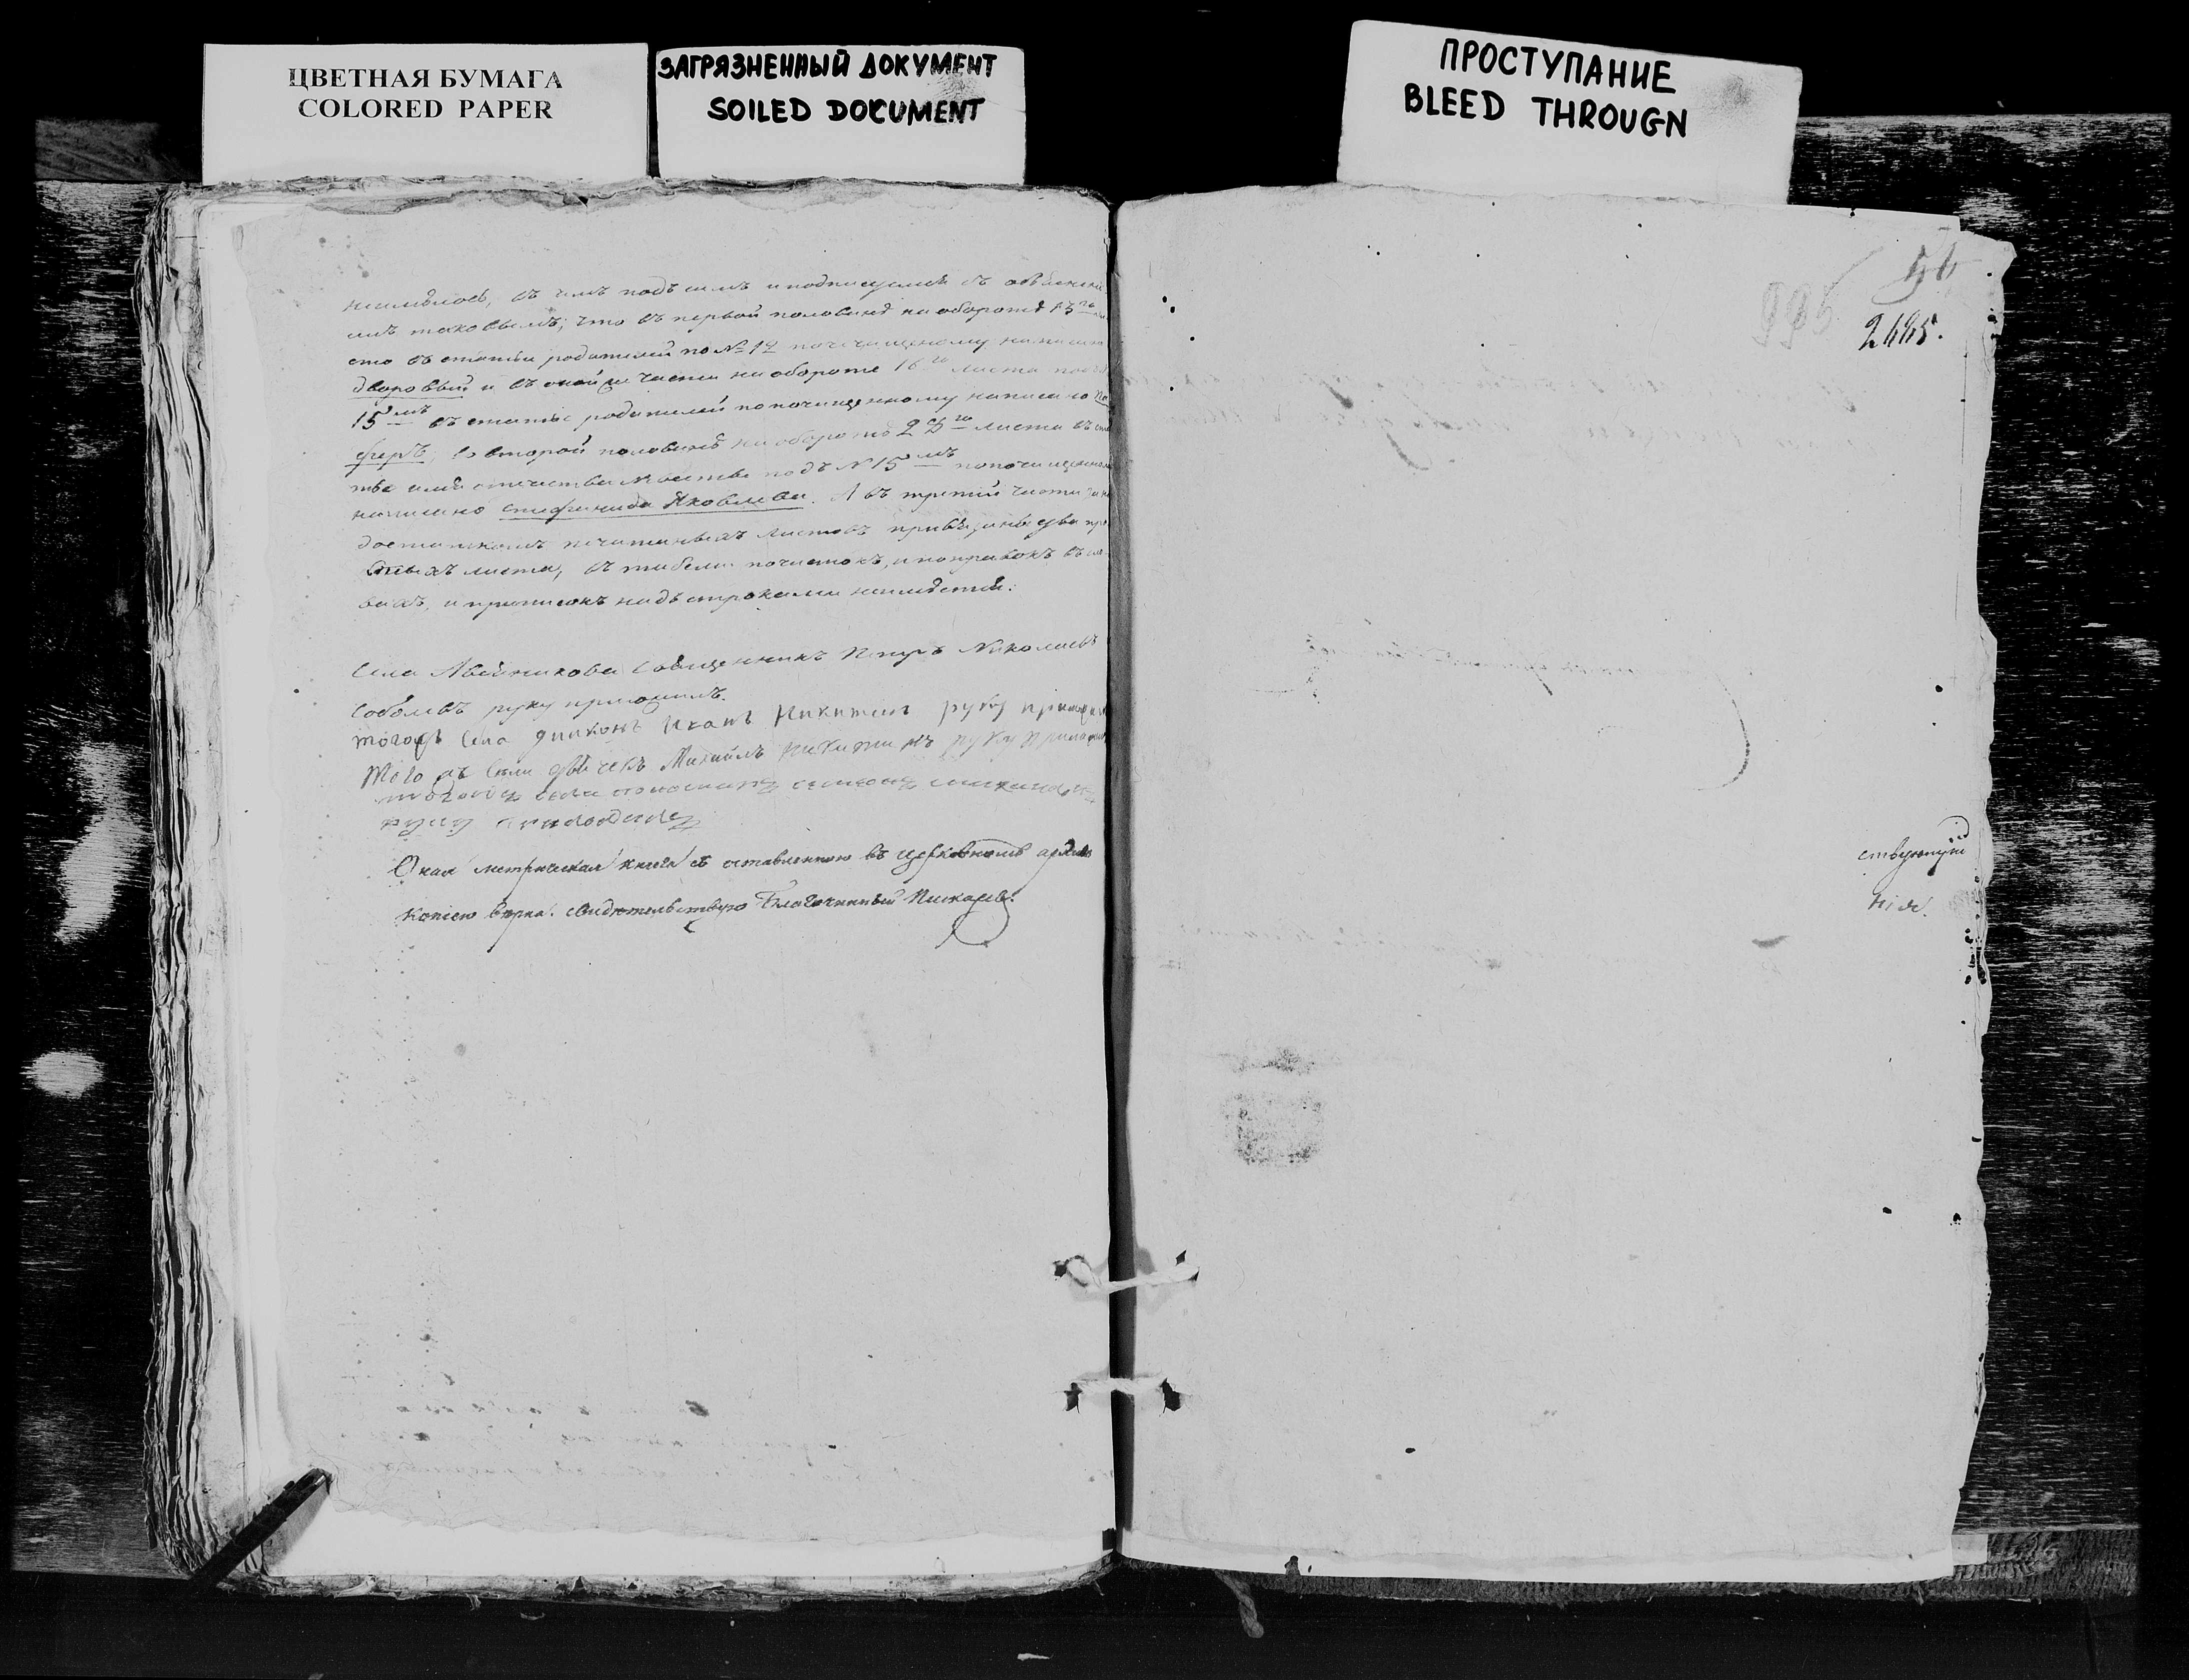 ЦВЕТНАЯ БУМАГА
COLORED PAPER
ЗАГРЯЗНЕННЫЙ ДОКУМЕНТ
SOILED DOCUMENT
ПРОСТУПАНИЕ
BLEED THROUGN
въ чемъ подъ симъ и подписуемся съ объясненi
емъ таковымъ; что въ первой половинѣ на оборотѣ 13го
ста въ статьи родителей по № 12 почищеному написан
дворовый и въ оной же части на обороте 16го листа подъ
15мъ въ статьѣ родителей по почищенному написано
феръ; во второй половинѣ на оборотѣ 25го листа въ ста
тьѣ имя отечества невесты подъ № 15мъ по почищенном
написано Стефанида Яковлева. А въ третiй части за не
достаткомъ печатныхъ листовъ два
листа, въ табели почистокъ, и поправокъ въ
вахъ, и приписокъ надъ строками неимѣется.
Села Священникъ Петръ Николаевъ
Соболевъ руку приложилъ.
тогожъ Села дияконъ Иванъ Никитинъ руку приложи
Того жъ Села дьячекъ Михайлъ Никитинъ руку приложи
тогожъ села пономарь
руку приложилъ
Оная метрическая книга съ оставленною въ церковномъ архивѣ
копiею верна. свидѣтельствую Благочинный Пискаревъ.
995
2445.
ствующiй
нiя.